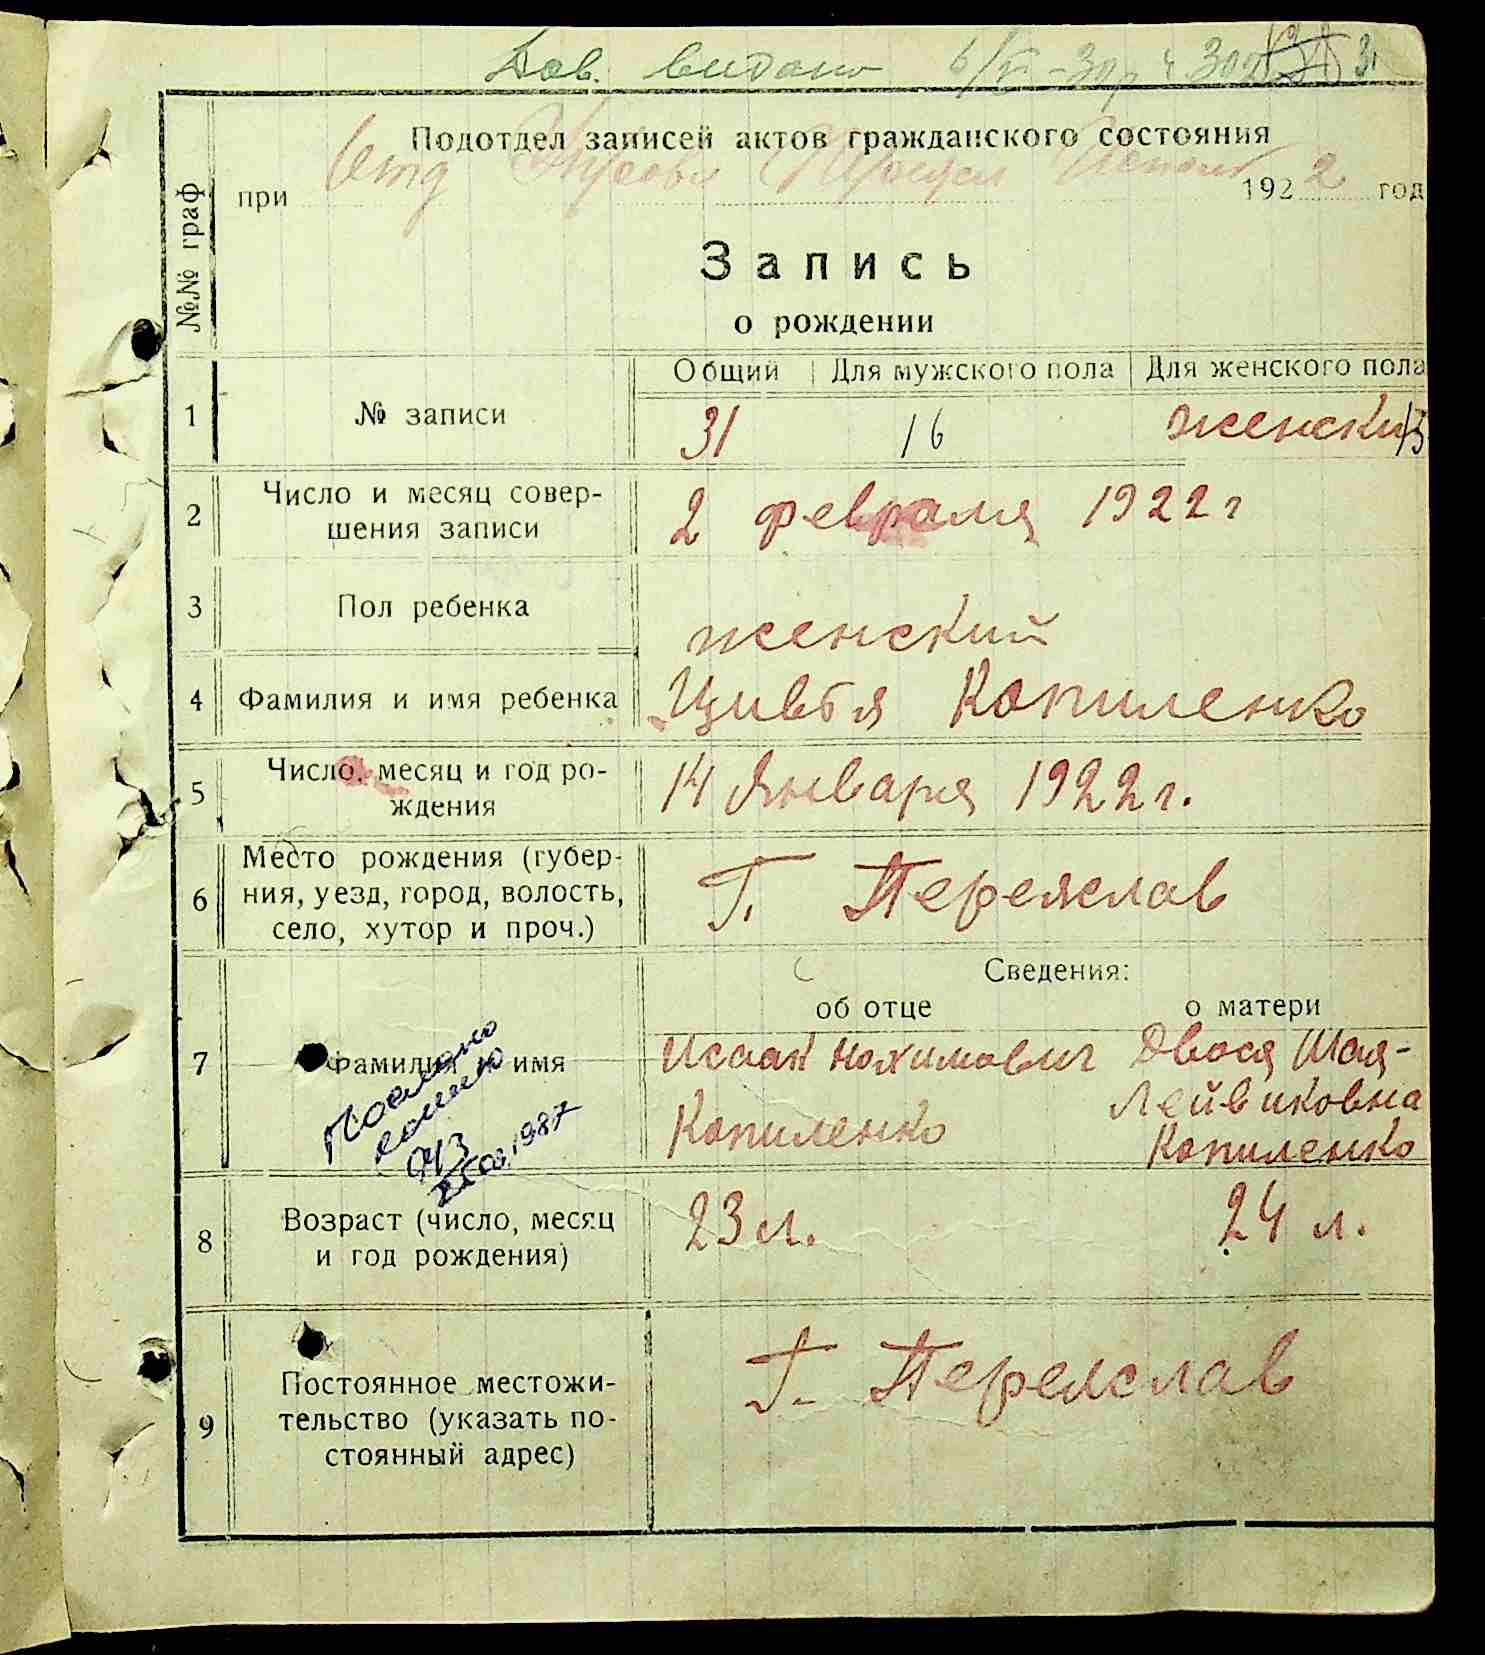 Дов. видано 6/VI-30р ч. 302
Подотдел записей актов гражданского состояния
при 1922 год
Запись
о рождении
№№ граф
Общий Для мужского пола Для женского пола
1 № записи 31 16 женский 15
2 Число и месяц совер-
шения записи 2 февраля 1922 г
3 Пол ребенка женский
4 Фамилия и имя ребенка Цивья Копиленко
5 Число, месяц и год ро-
ждения 14 Января 1922 г.
6 Место рождения (губер-
ния, уезд, город, волость,
село, хутор и проч.) Г. Переяслав
Сведения:
об отце о матери
7 Фамилия имя Исаак Нохимович Двося Шая-
Лейвиковна
Копиленко Копиленко
1987
8 Возраст (число, месяц
и год рождения) 23 л. 24 л.
9 Постоянное местожи-
тельство (указать по-
стоянный адрес) Г. Переяслав